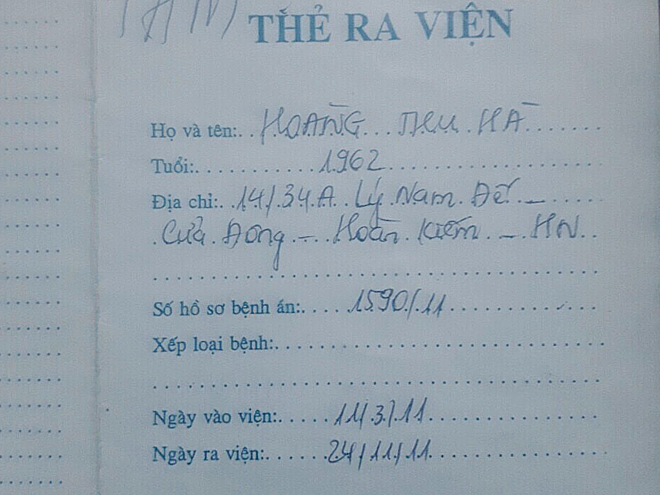 TÂM
THẺ RA VIỆN
Họ và tên: HOÀNG THU HÀ
Tuổi: 1962
Địa chỉ: 14/34A Lý Nam Đế -
Cửa Đông - Hoàn Kiếm - HN
Số hồ sơ bệnh án: 1590/11
Xếp loại bệnh:
Ngày vào viện: 11/3/11
Ngày ra viện: 24/11/11